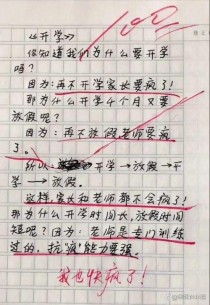 100
《开学》
你知道我们为什么要开学
吗?
因为:再不开学家长要疯了!
那为什么开学4个月又要
放假呢?
因为:再不放假老师要疯
了。
所以:开学→放假→开
学→放假。
这样,家长和老师都不会疯了!
那为什么开学时间长,放假时间
短呢?因为:老师是专门训练
过的,抗"疯"能力要强。
我也快疯了!